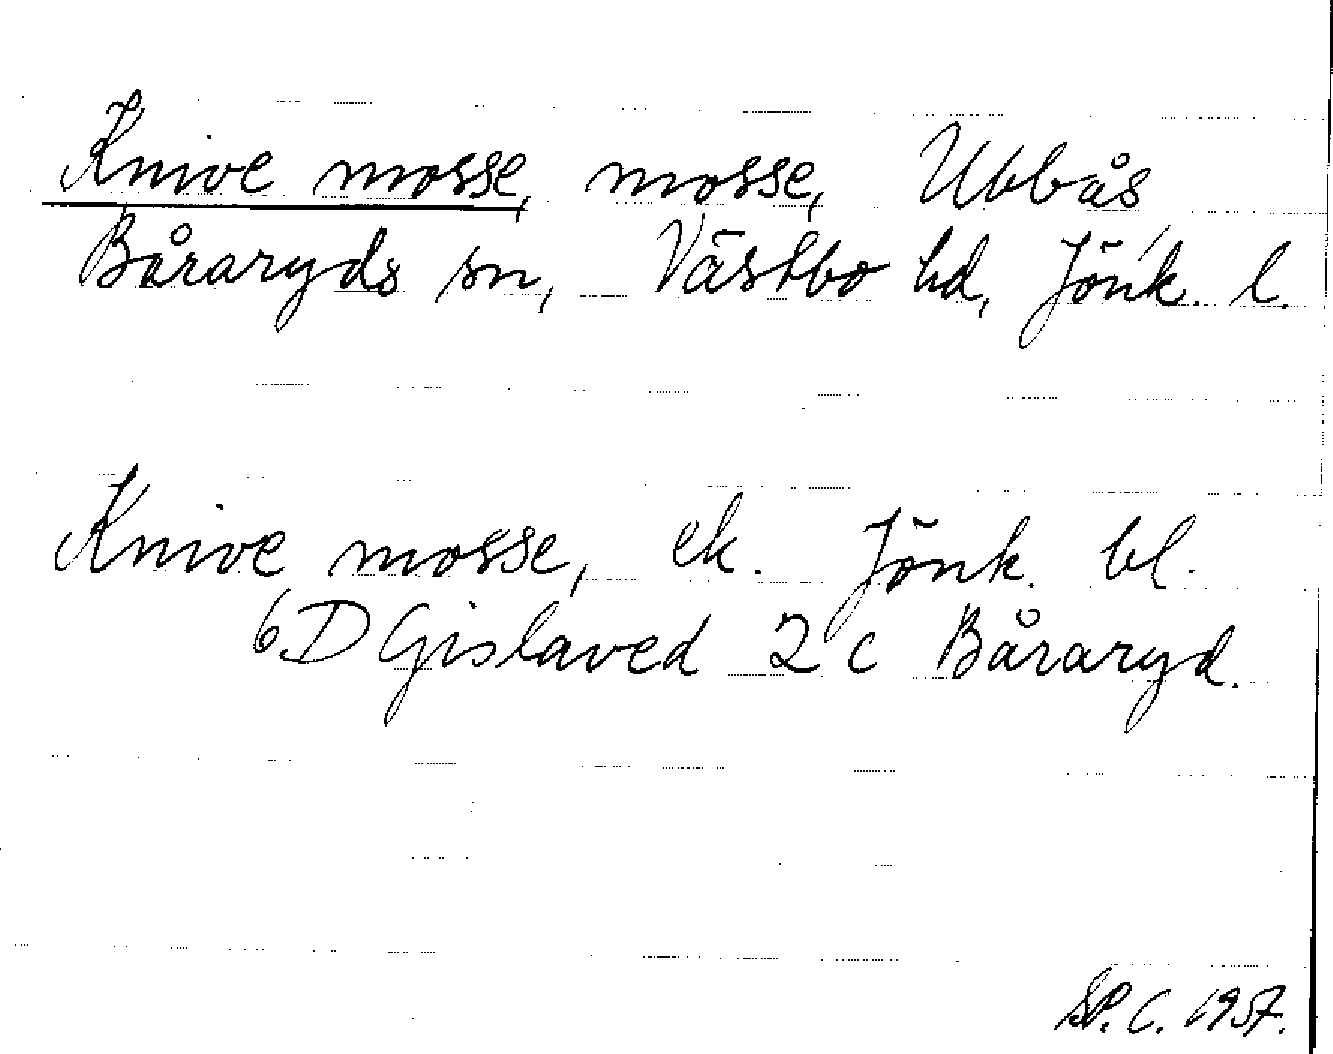 Knive mosse, mosse, Ubbås
Båraryds sn, Västbo hd, Jönk. l.
Knive mosse, ek. Jönk. bl.
6D Gislaved 2 c Båraryd.
SP. C. 1957.